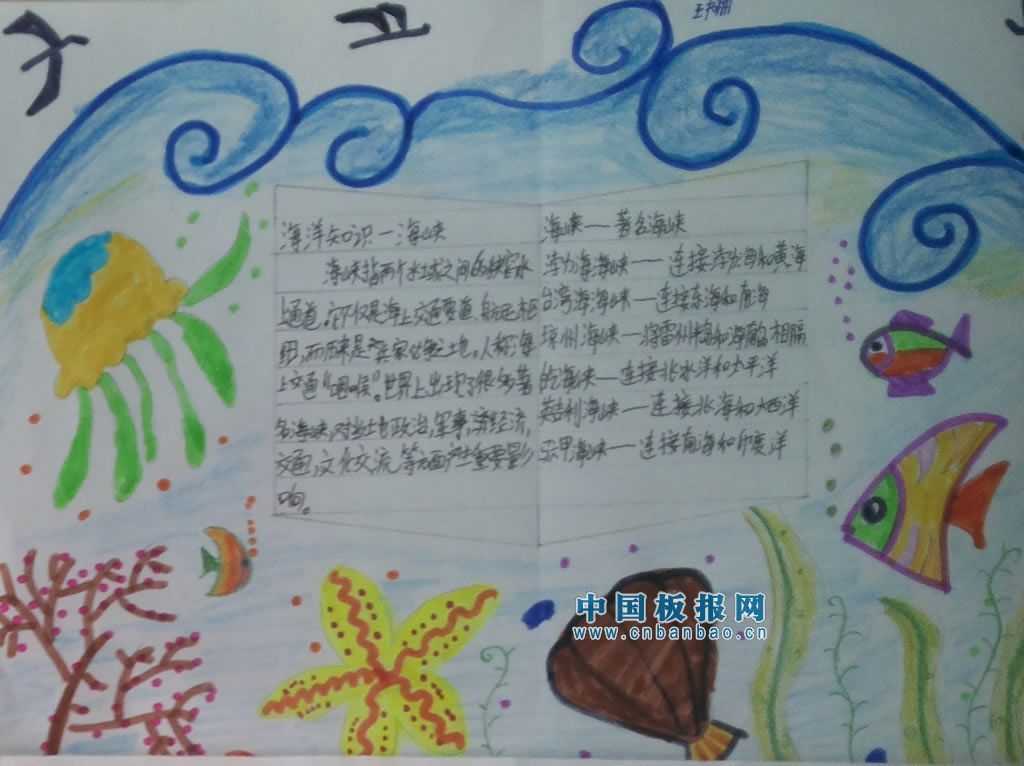 海洋知识一海峡
海峡指两个水域之间的狭窄水
通道,它不仅是海上交通要道、航运枢
纽,而历来是兵家必争之地。人称"海
上交通"咽喉"。世界上出现了很多著
名海峡,对当地政治,军事,济经流,
交通,文化交流,等方面产生重要影
响。
海峡——著名海峡
渤海海峡——连接渤海和黄海
台湾海海峡—连接东海和南海
琼州海峡—将雷州半岛和海南岛相隔
海峡—连接北冰洋和太平洋
英吉利海峡—连接北海和大西洋
马六甲海峡—连接南海和印度洋
中国板报网
www.cnbanbao.cn